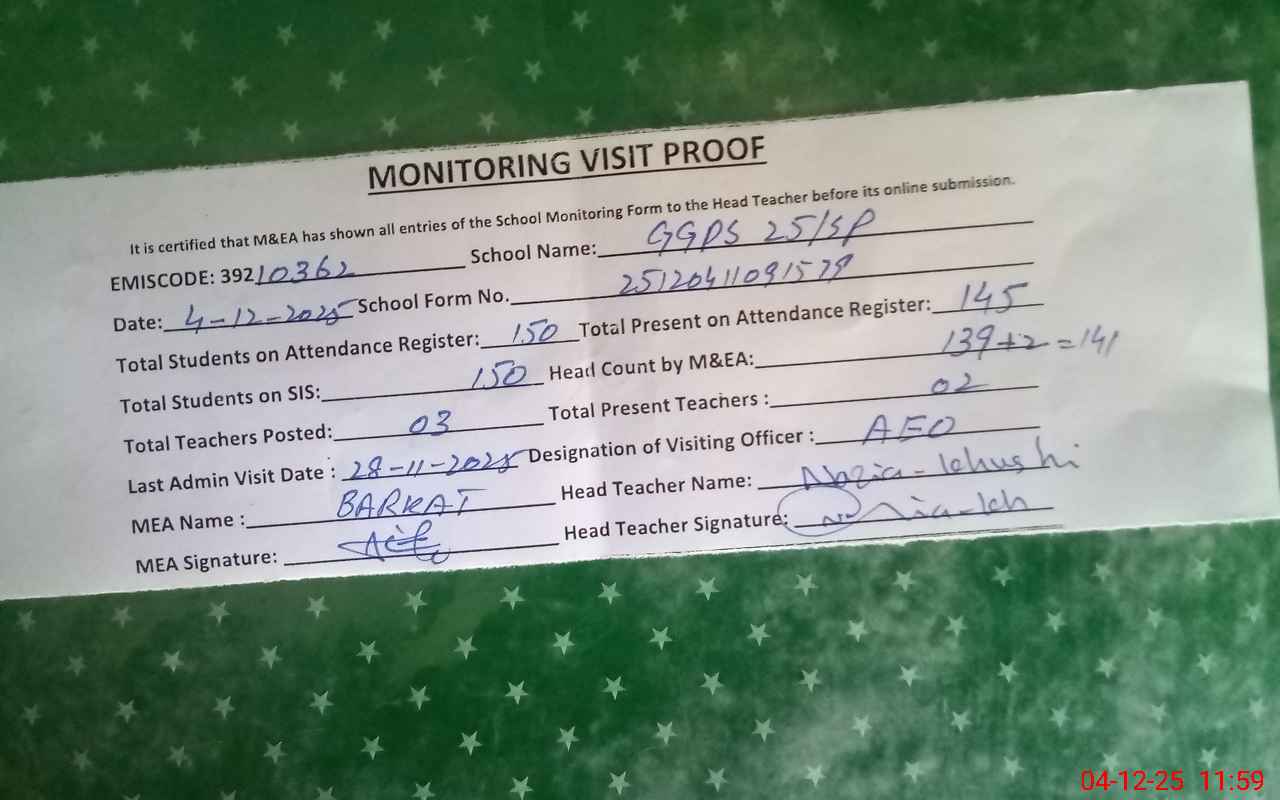 MONITORING VISIT PROOF
It is certified that M&EA has shown all entries of the School Monitoring Form to the Head Teacher before its online submission.
EMISCODE: 39210362 School Name: GGPS 25/SP
Date: 4-12-2025 School Form No. 25120411091579
Total Students on Attendance Register: 150 Total Present on Attendance Register: 145
Total Students on SIS: 150 Head Count by M&EA: 139+2=141
Total Teachers Posted: 03 Total Present Teachers : 02
Last Admin Visit Date : 28-11-2025 Designation of Visiting Officer : AEO
MEA Name : BARKAT Head Teacher Name: Nazia-khushi
MEA Signature: Head Teacher Signature:
04-12-25 11:59